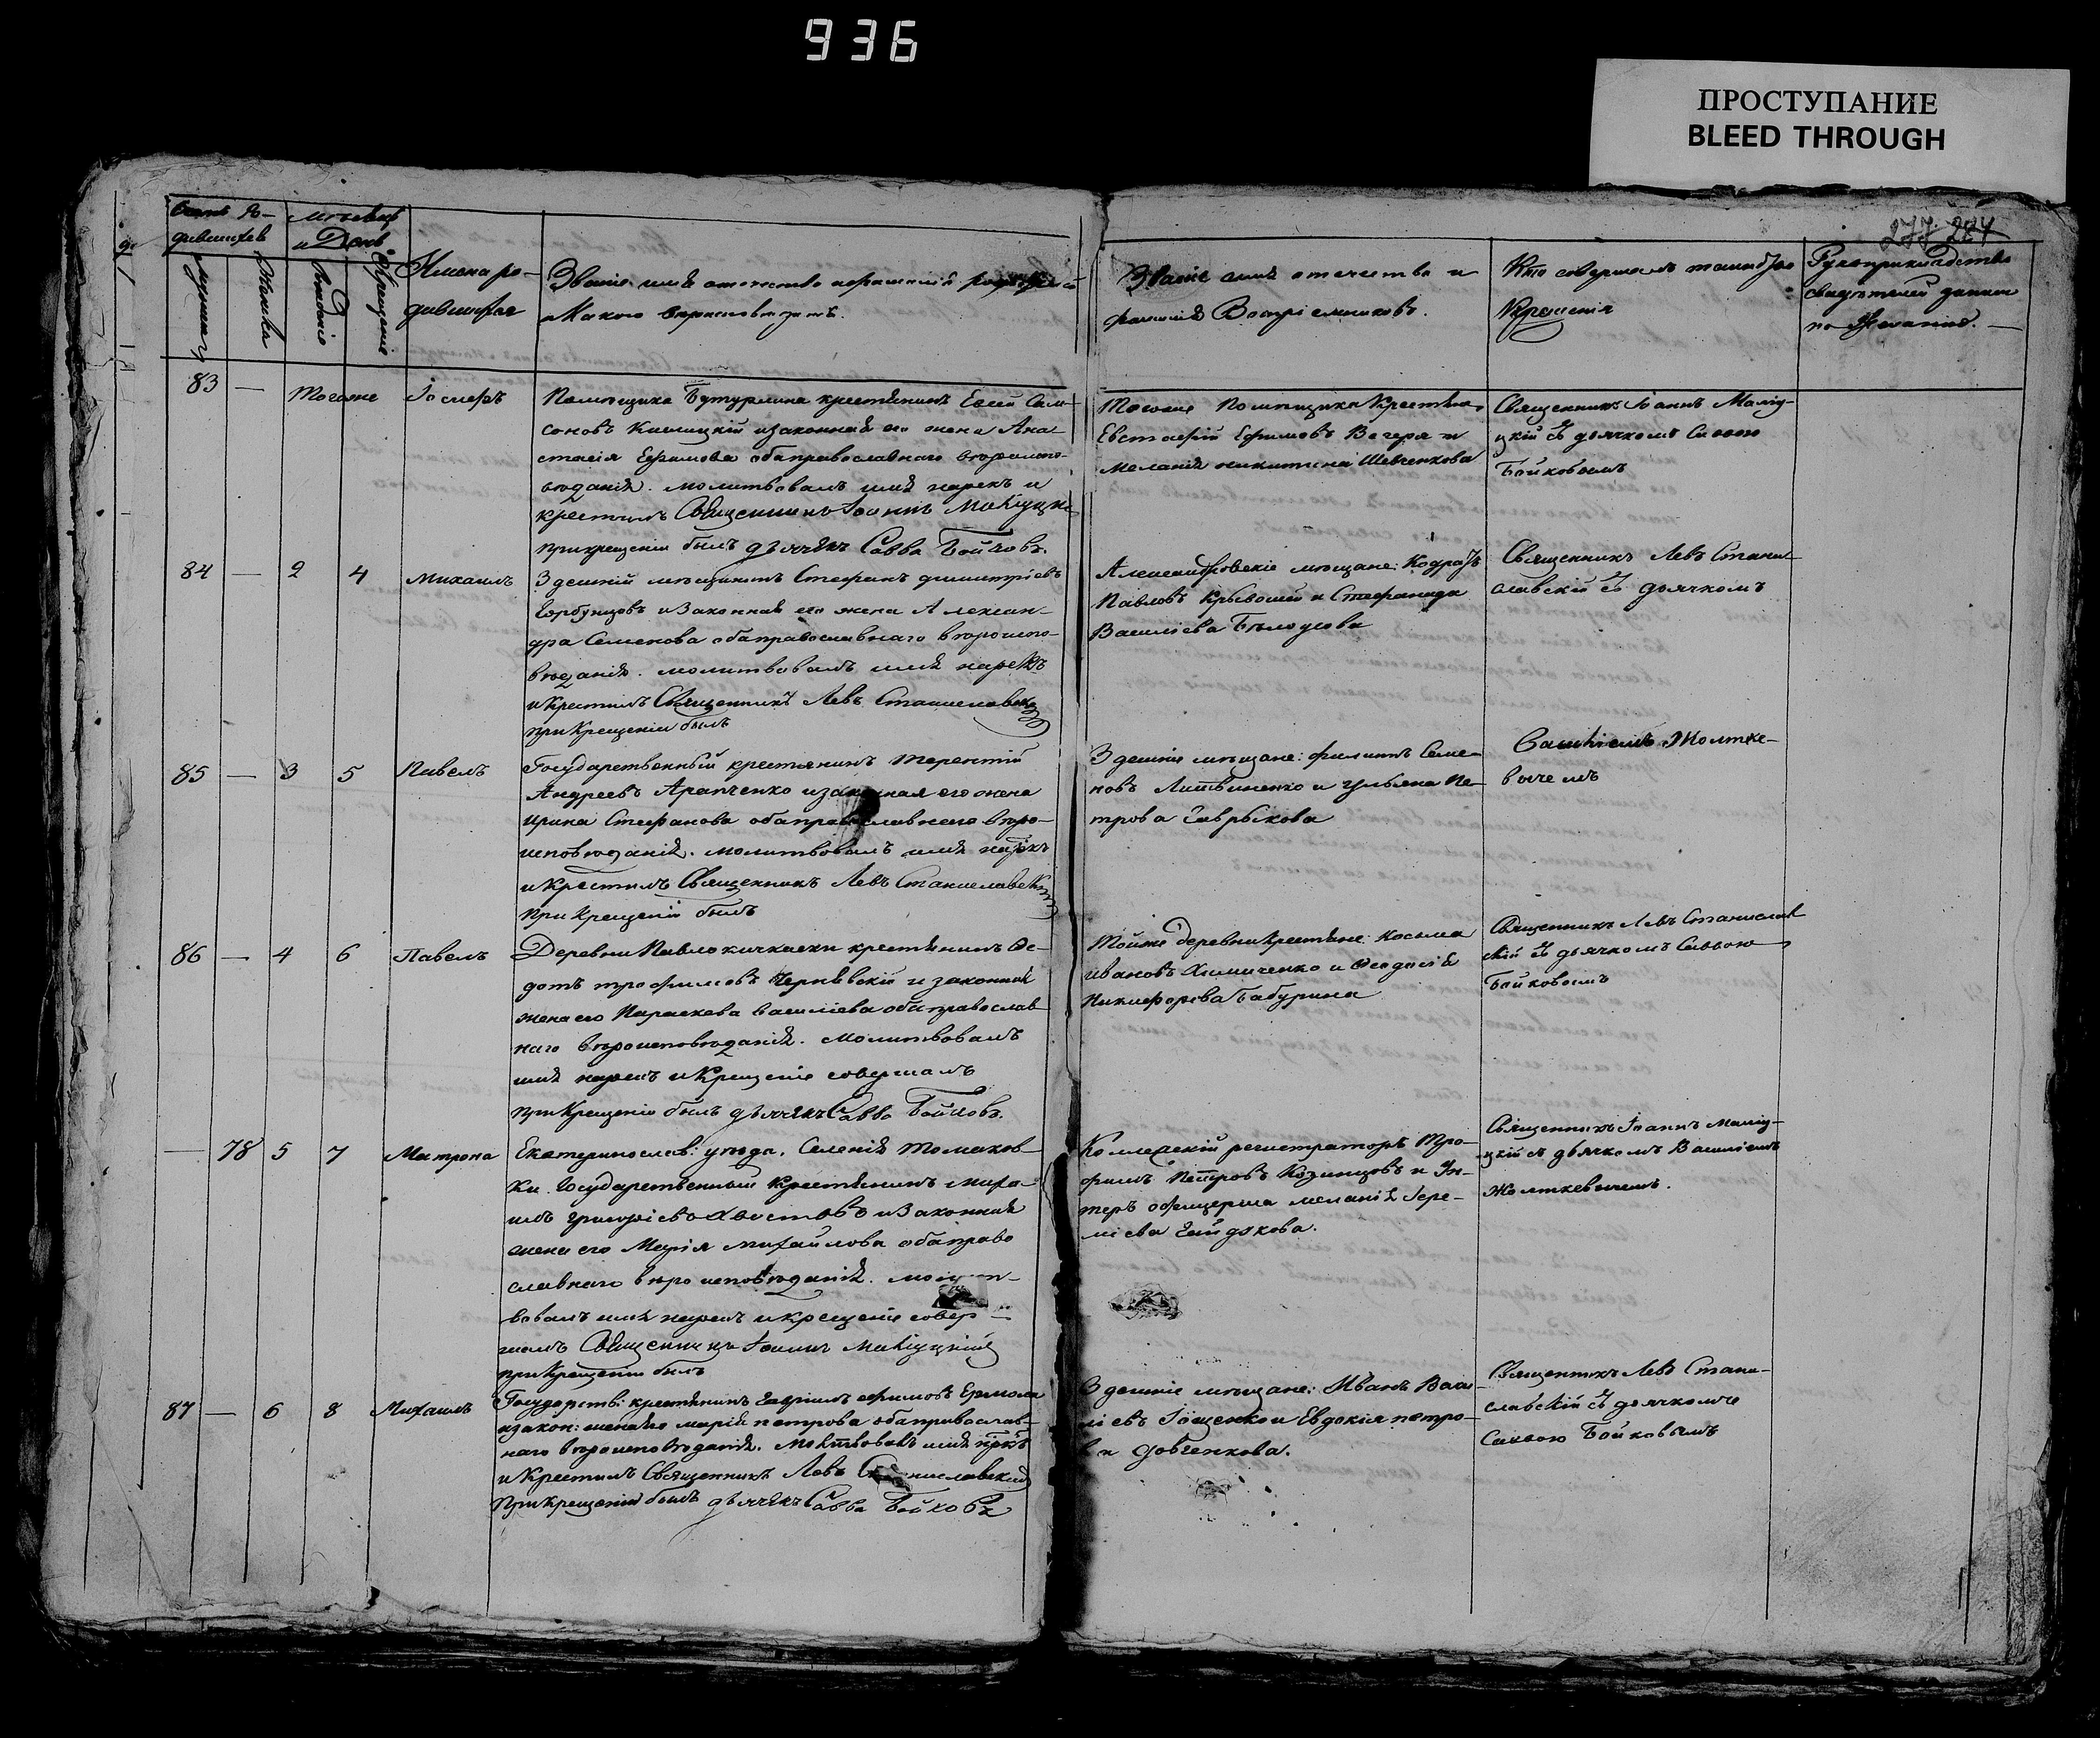 936
ПРОСТУПАНИЕ
BLEED THROUGH
277 284
Счетъ Ро-
дившихся
Мѣсяцъ
и День
Мужеска
Женска
Рожденія
Крещенія
Имена ро-
дившихся
Званіе имя отечество и фамилія родителей
и Какого вѣроисповѣданія.
Званіе имя отечество и
фамилія Воспріемниковъ.
Кто совершалъ таинство
Крещенія
Рукоприкладство
свидѣтелей записи
по желанію.
83 — Тогоже Іосифъ
Помѣщика Бутурлина крестьянинъ Евсей Сам-
соновъ и законная его жена Ана-
стасія Ефимова оба православнаго вѣроиспо-
вѣданія. молитвовалъ имя нарекъ и
крестилъ Священникъ Іоаннъ
при крещеніи былъ дьячекъ Савва Бойковъ.
Тогоже Помѣщика Крестьяне
Евстафій Ефимовъ Вечеря и
Меланія Никитина Шевченкова
Священникъ Іоаннъ
цкій съ дьячкомъ Саввою
Бойковымъ
84 — 2 4 Михаилъ
Здешній мѣщанинъ Стефанъ Димитріевъ
Горбунцовъ и Законная его жена Алексан-
дра Семенова оба православнаго вѣроиспо-
вѣданія. молитвовалъ имя нарекъ
и Крестилъ Священникъ Левъ Станиславскій
при Крещеніи былъ
Александровскіе мѣщане: Кодратъ
Павловъ Крывошей и Стефанида
Василіева Бѣлоусова
Священникъ Левъ Стани-
славскій съ дьячкомъ
85 — 3 5 Павелъ
Государственный крестьянинъ Терентій
Андреевъ Арапченко и законная его жена
Ирина Стефанова оба православнаго вѣро-
исповѣданія. молитвовалъ имя нарекъ
и Крестилъ Священникъ Левъ Станиславскій
при Крещеніи былъ
Здешніе мѣщане: Филипъ Семе-
новъ Литвиненко и Ульяна Пе-
трова Гаврыкова
Василіемъ Жолтке-
вычемъ
86 — 4 6 Павелъ
Деревни Павлокичкаски крестьянинъ Ѳе-
дотъ Трофимовъ Чернявскій и законная
жена его Параскева Василіева оба православ-
наго вѣроисповѣданія. Молитвовалъ
имя нарекъ и Крещеніе совершалъ
при Крещеніи былъ дьячекъ Савва Бойковъ.
Тойже деревни Крестьяне: Косьма
Ивановъ Химиченко и Ѳеодосія
Никифорова Бабурина
Священникъ Левъ Станислав
скій съ дьячкомъ Саввою
Бойковымъ
— 78 5 7 Матрона
Екатеринослав: уѣзда, Селенія Томаков-
ки Государственный Крестьянинъ Миха-
илъ Григоріевъ Хвостовъ и Законная
жена его Марія Михайлова оба право
славнаго вѣроисповѣданія. молит-
вовалъ имя нарекъ и крещеніе совер-
шалъ Священникъ Іоаннъ
при Крещеніи былъ
Коллежскій регистраторъ Тро-
фимъ Петровъ Козинцовъ и Ун-
теръ офицерша Меланія Іере-
міева Гайдукова.
Священникъ Іоаннъ
цкій съ дьячкомъ Василіемъ
Жолткевичемъ.
87 — 6 8 Михаилъ
Государств: крестьянинъ Гавріилъ Ефимовъ Ермола
и закон: жена его Марія Петрова оба православ-
наго вѣроисповѣданія. имя
и Крестилъ Священникъ Левъ Станиславскій
при Крещеніи былъ дьячекъ Савва Бойковъ
Здешніе мѣщане: Иванъ Васи-
ліевъ Іощенко и Евдокія Петро-
ва Довченкова.
Священникъ Левъ Стани-
славскій съ дьячкомъ
Саввою Бойковымъ